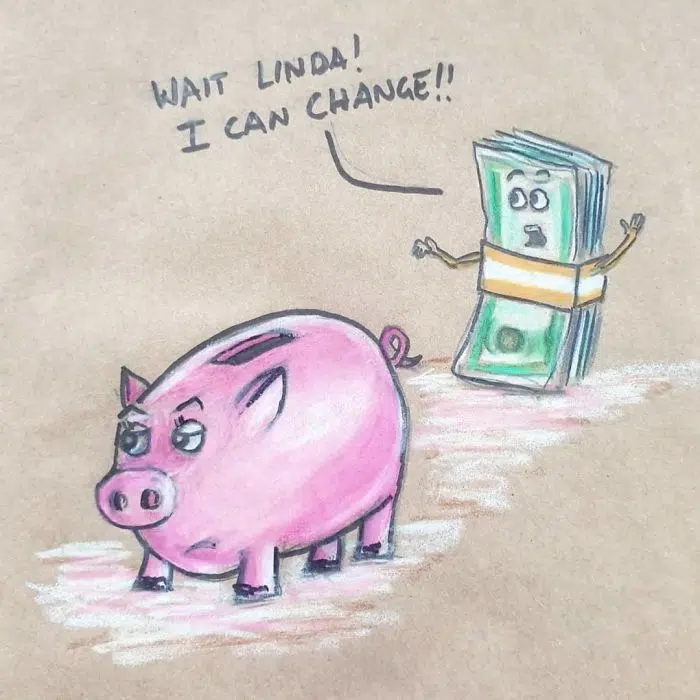 WAIT LINDA!
I CAN CHANGE!!